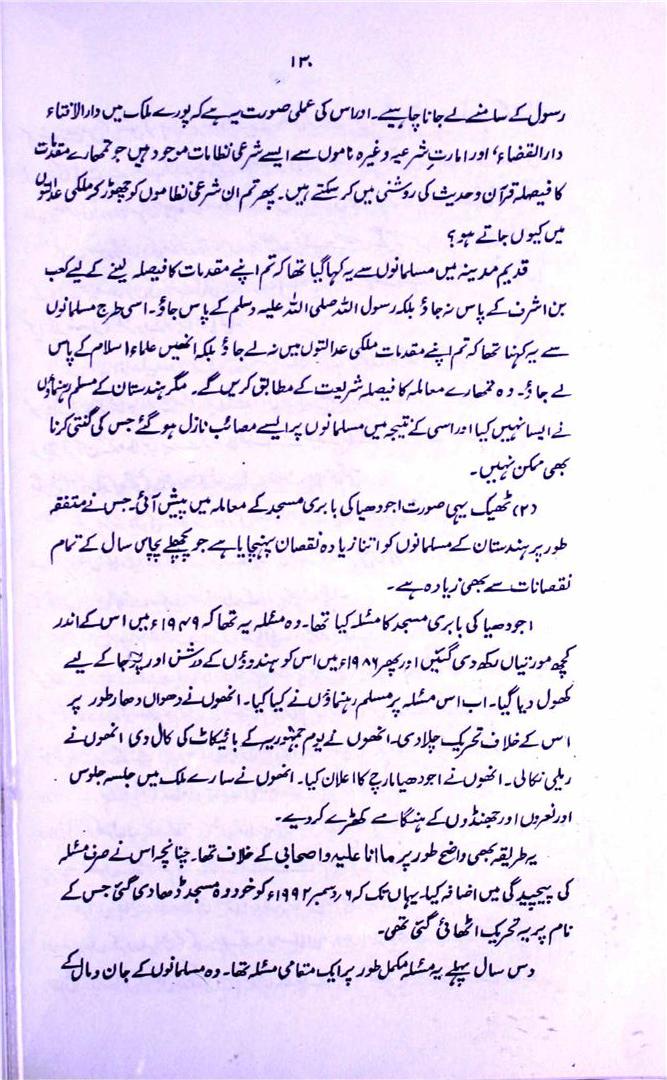 ۱۳۰
رسول کے سامنے لے جانا چاہیے۔ اور اس کی عملی صورت یہ ہے کہ پورے ملک میں دار الافتاء
دار القضاء، اور امارتِ شرعیہ وغیرہ ناموں سے ایسے شرعی نظامات موجود ہیں جو تمھارے مقدمات
کا فیصلہ قرآن و حدیث کی روشنی میں کر سکتے ہیں۔ پھر تم ان شرعی نظاموں کو چھوڑ کر ملکی عدالتوں
میں کیوں جاتے ہو؟
قدیم مدینہ میں مسلمانوں سے یہ کہا گیا تھا کہ تم اپنے مقدمات کا فیصلہ لینے کے لیے کعب
بن اشرف کے پاس نہ جاؤ بلکہ رسول اللہ صلی اللہ علیہ وسلم کے پاس جاؤ۔ اسی طرح مسلمانوں
سے یہ کہنا تھا کہ تم اپنے مقدمات ملکی عدالتوں میں نہ لے جاؤ بلکہ انھیں علماء اسلام کے پاس
لے جاؤ۔ وہ تمھارے معاملہ کا فیصلہ شریعت کے مطابق کریں گے۔ مگر ہندستان کے مسلم رہنماؤں
نے ایسا نہیں کیا اور اسی کے نتیجہ میں مسلمانوں پر ایسے مصائب نازل ہو گئے جس کی گنتی کرنا
بھی ممکن نہیں۔
(۲) ٹھیک یہی صورت اجودھیا کی بابری مسجد کے معاملہ میں پیش آئی۔ جس نے متفقہ
طور پر ہندستان کے مسلمانوں کو اتنا زیادہ نقصان پہنچایا ہے جو پچھلے پچاس سال کے تمام
نقصانات سے بھی زیادہ ہے۔
اجودھیا کی بابری مسجد کا مسئلہ کیا تھا۔ وہ مسئلہ یہ تھا کہ ۱۹۴۹ء میں اس کے اندر
کچھ مورتیاں رکھ دی گئیں اور پھر ۱۹۸۶ء میں اس کو ہندوؤں کے درشن اور پوجا کے لیے
کھول دیا گیا۔ اب اس مسئلہ پر مسلم رہنماؤں نے کیا کیا۔ انھوں نے دھواں دھار طور پر
اس کے خلاف تحریک چلا دی۔ انھوں نے یوم جمہوریہ کے بائیکاٹ کی کال دی انھوں نے
ریلی نکالی۔ انھوں نے اجودھیا مارچ کا اعلان کیا۔ انھوں نے سارے ملک میں جلسہ جلوس
اور نعروں اور جھنڈوں کے ہنگامے کھڑے کر دیے۔
یہ طریقہ بھی واضح طور پر ما انا علیہ و اصحابی کے خلاف تھا۔ چنانچہ اس نے صرف مسئلہ
کی پیچیدگی میں اضافہ کیا۔ یہاں تک کہ ۶ دسمبر ۱۹۹۲ء کو خود وہ مسجد ڈھا دی گئی جس کے
نام پر یہ تحریک اٹھائی گئی تھی۔
دس سال پہلے یہ مسئلہ مکمل طور پر ایک مقامی مسئلہ تھا۔ وہ مسلمانوں کے جان و مال کے